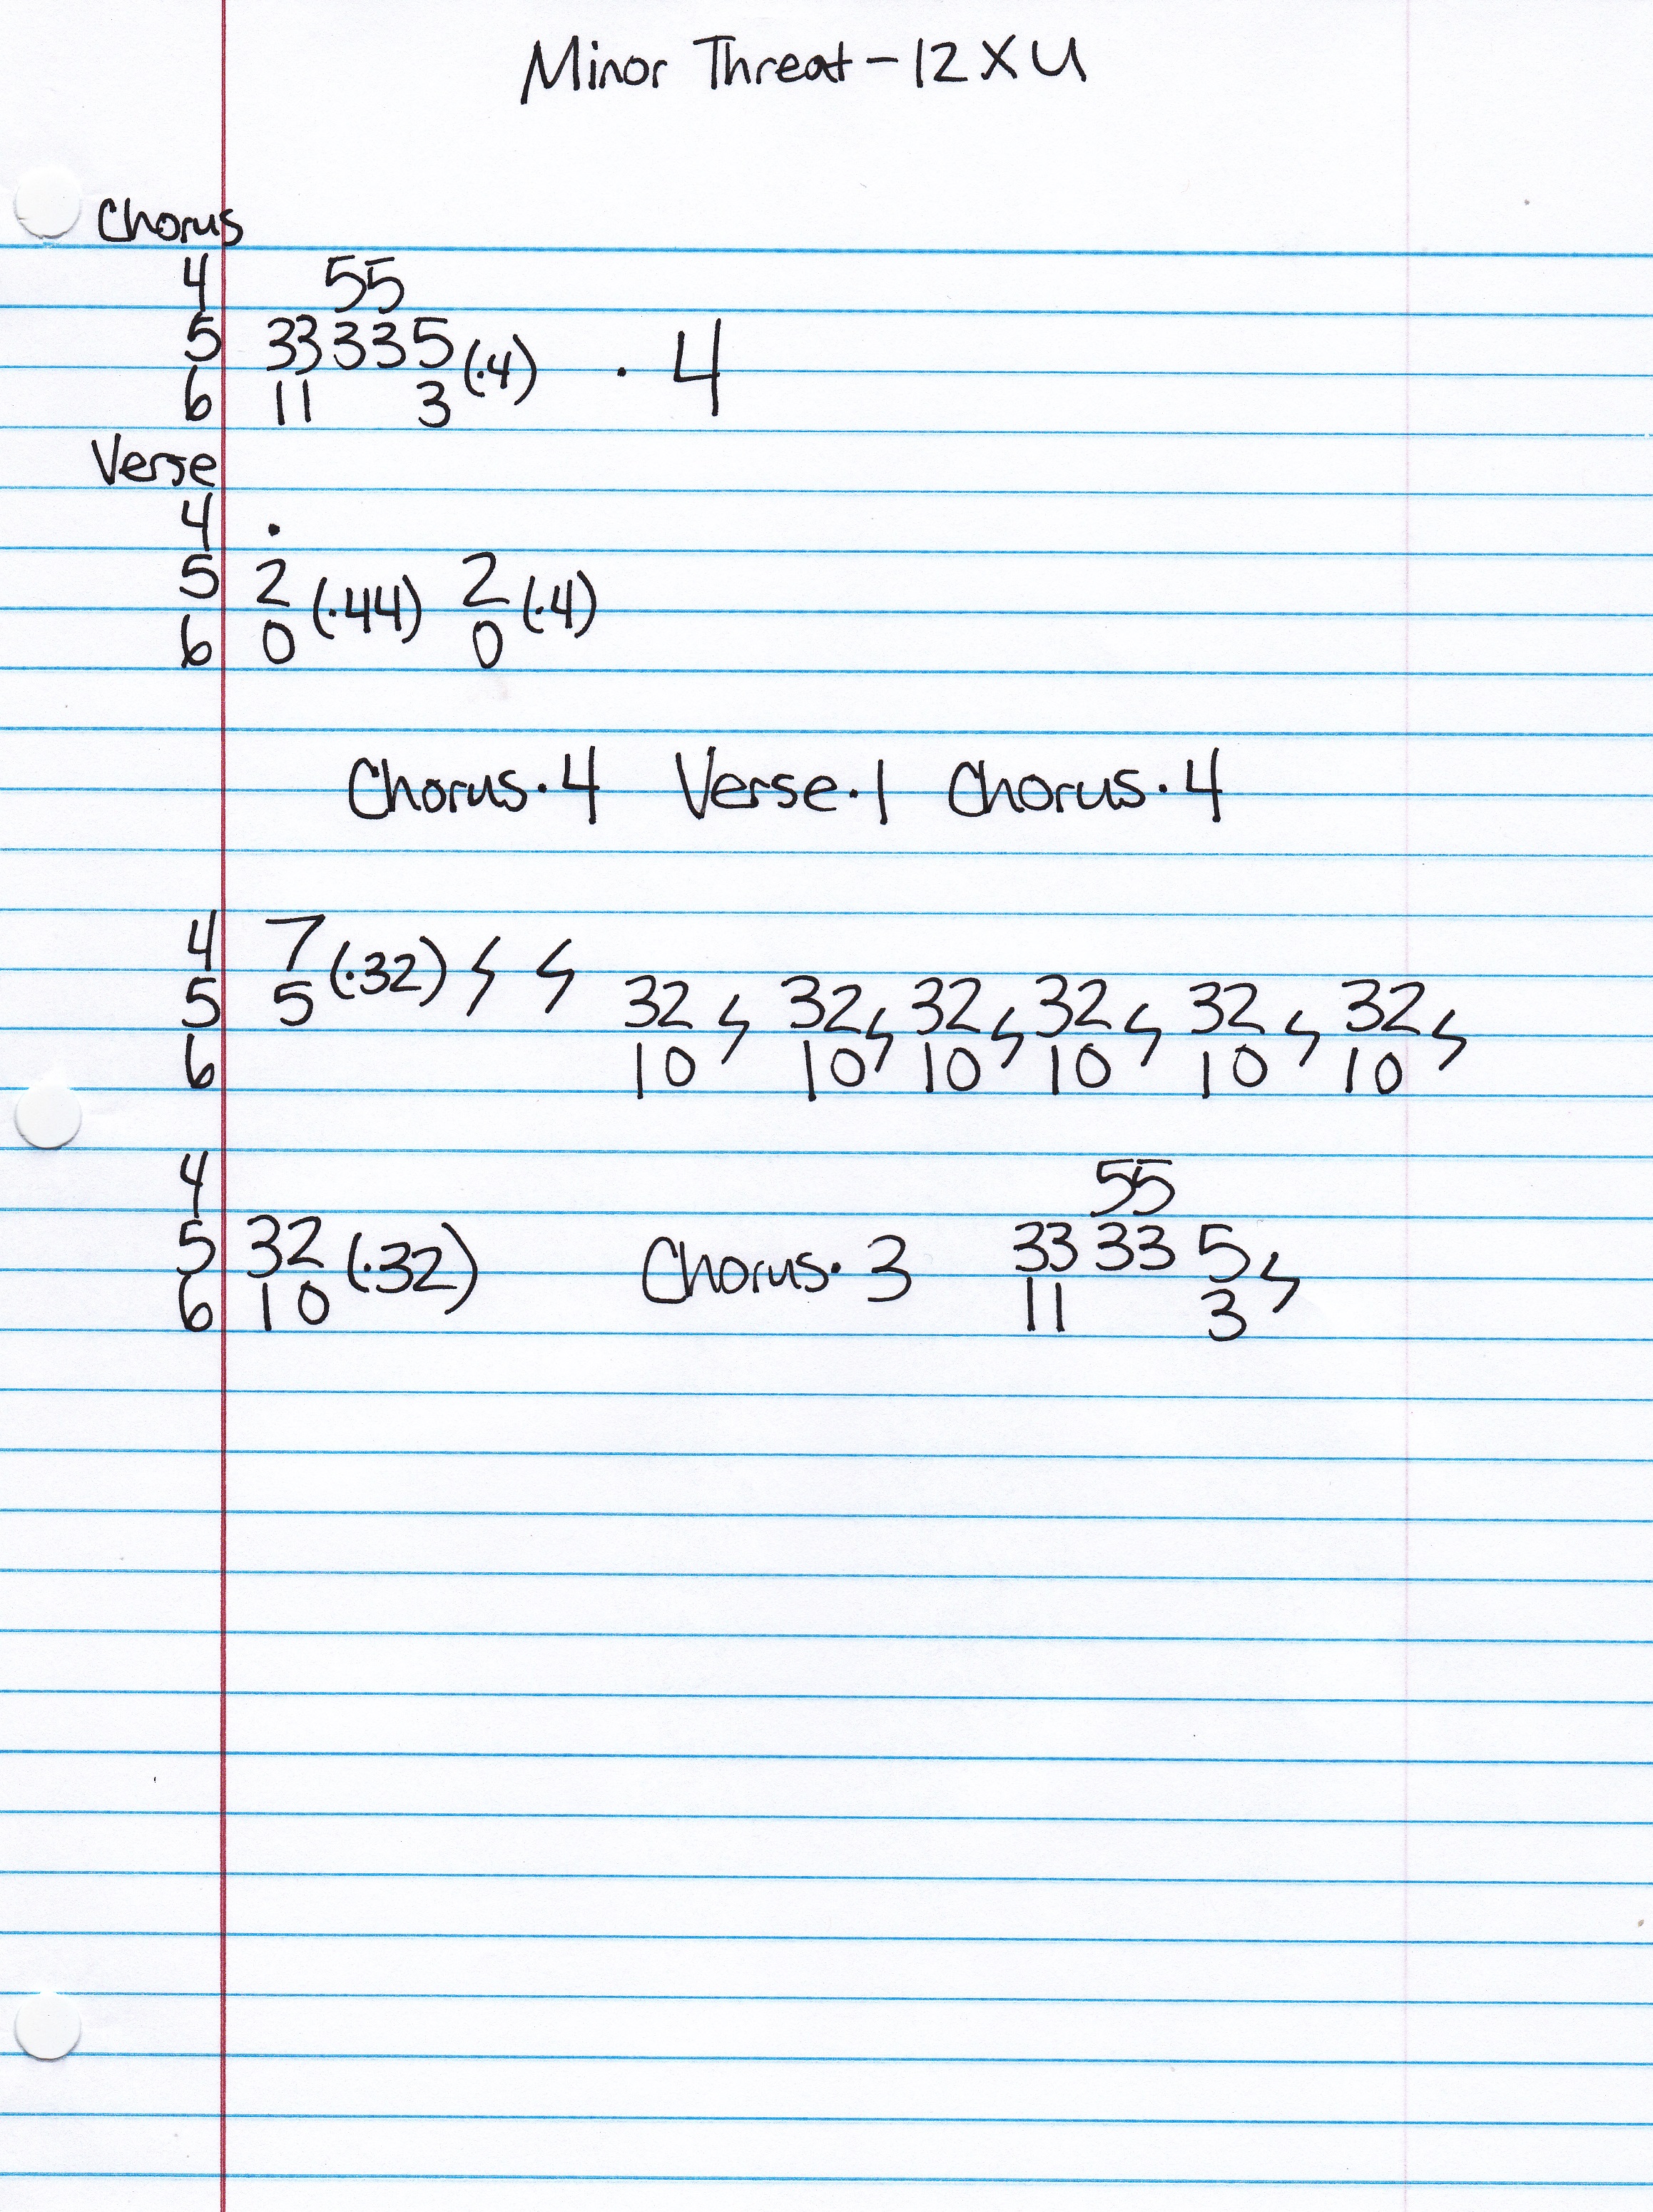 Minor Threat - 12XU
Chorus
4 55
5 33 33 5 (·4) · 4
6 11 3
Verse
4 ·
5 2 (·44) 2 (·4)
6 0 0
Chorus·4 Verse·1 Chorus·4
4 7 (·32)
5 5 32 32 32 32 32 32
6 10 10 10 10 10 10
4 55
5 32 (·32) Chorus·3 33 33 5
6 10 11 3